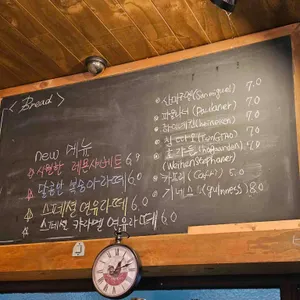 < Bread >
new 메뉴
시원한 레몬샤베트 6.9
달콤한 복숭아라떼 6.0
스페셜 연유라떼 6.0
스페셜 캬라멜 연유라떼 6.0
산미구엘(San miguel) 7.0
파울라너(Paulaner) 7.0
하이네켄(heineken) 7.0
칭따오(TsingTao) 7.0
호가든(hoegaarden) 7.0
(Weihenstephaner)
카프리(Cafri) 5.0
기네스(Guinness) 8.0